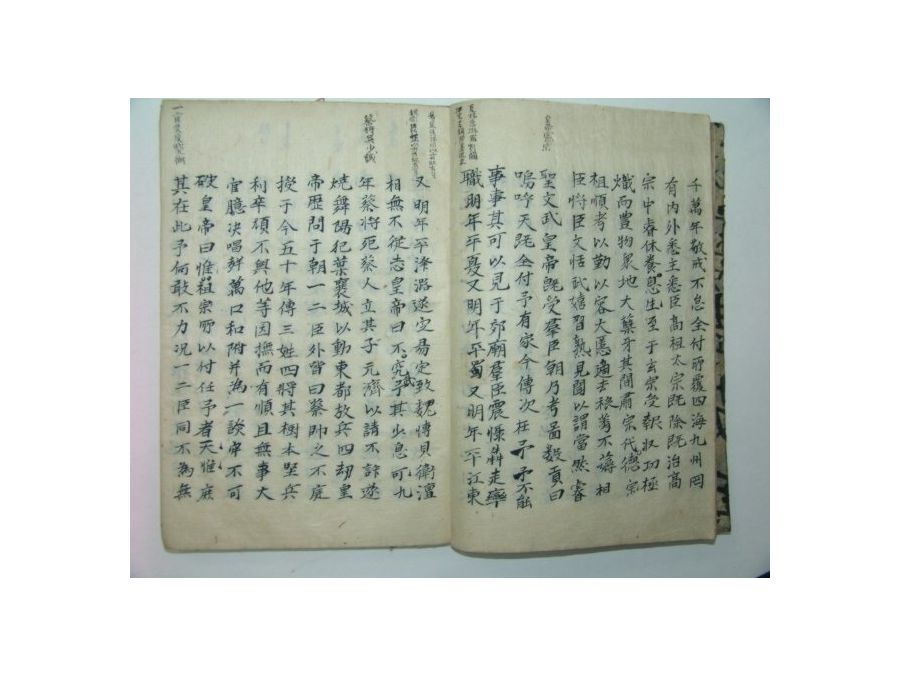 千萬年敬戒不怠全付所覆四海九州罔
有內外悉主悉臣高祖太宗既除既治高
宗中睿休養息生至于玄宗受報收功極
熾而豊物衆地大蘖牙其間肅宗代德宗
祖順考以勤以容大慝適去稂莠不薅相
臣將臣文恬武嬉習熟見聞以謂當然睿
聖文武皇帝既受羣臣朝乃考圖數貢曰
嗚呼天既全付予有家今傳次在予予不能
事事其可以見于郊廟羣臣震慄犇走率
職明年平夏又明年平蜀又明年平江東
又明年平澤潞遂定易定致魏博貝衛澶
相無不從志皇帝曰不究武予其少息可九
年蔡將死蔡人立其子元濟以請不許遂
燒舞陽犯葉襄城以動東都放兵四刼皇
帝歷問于朝一二臣外皆曰蔡帥之不庭
授于今五十年傳三姓四將其樹本堅兵
利卒頑不與他等因撫而有順且無事大
官臆決唱聲萬口和附并為一談牢不可
破皇帝曰惟祖宗所以付任予者天惟庶
其在此予何敢不力況一二臣同不為無
蔡將吳少誠